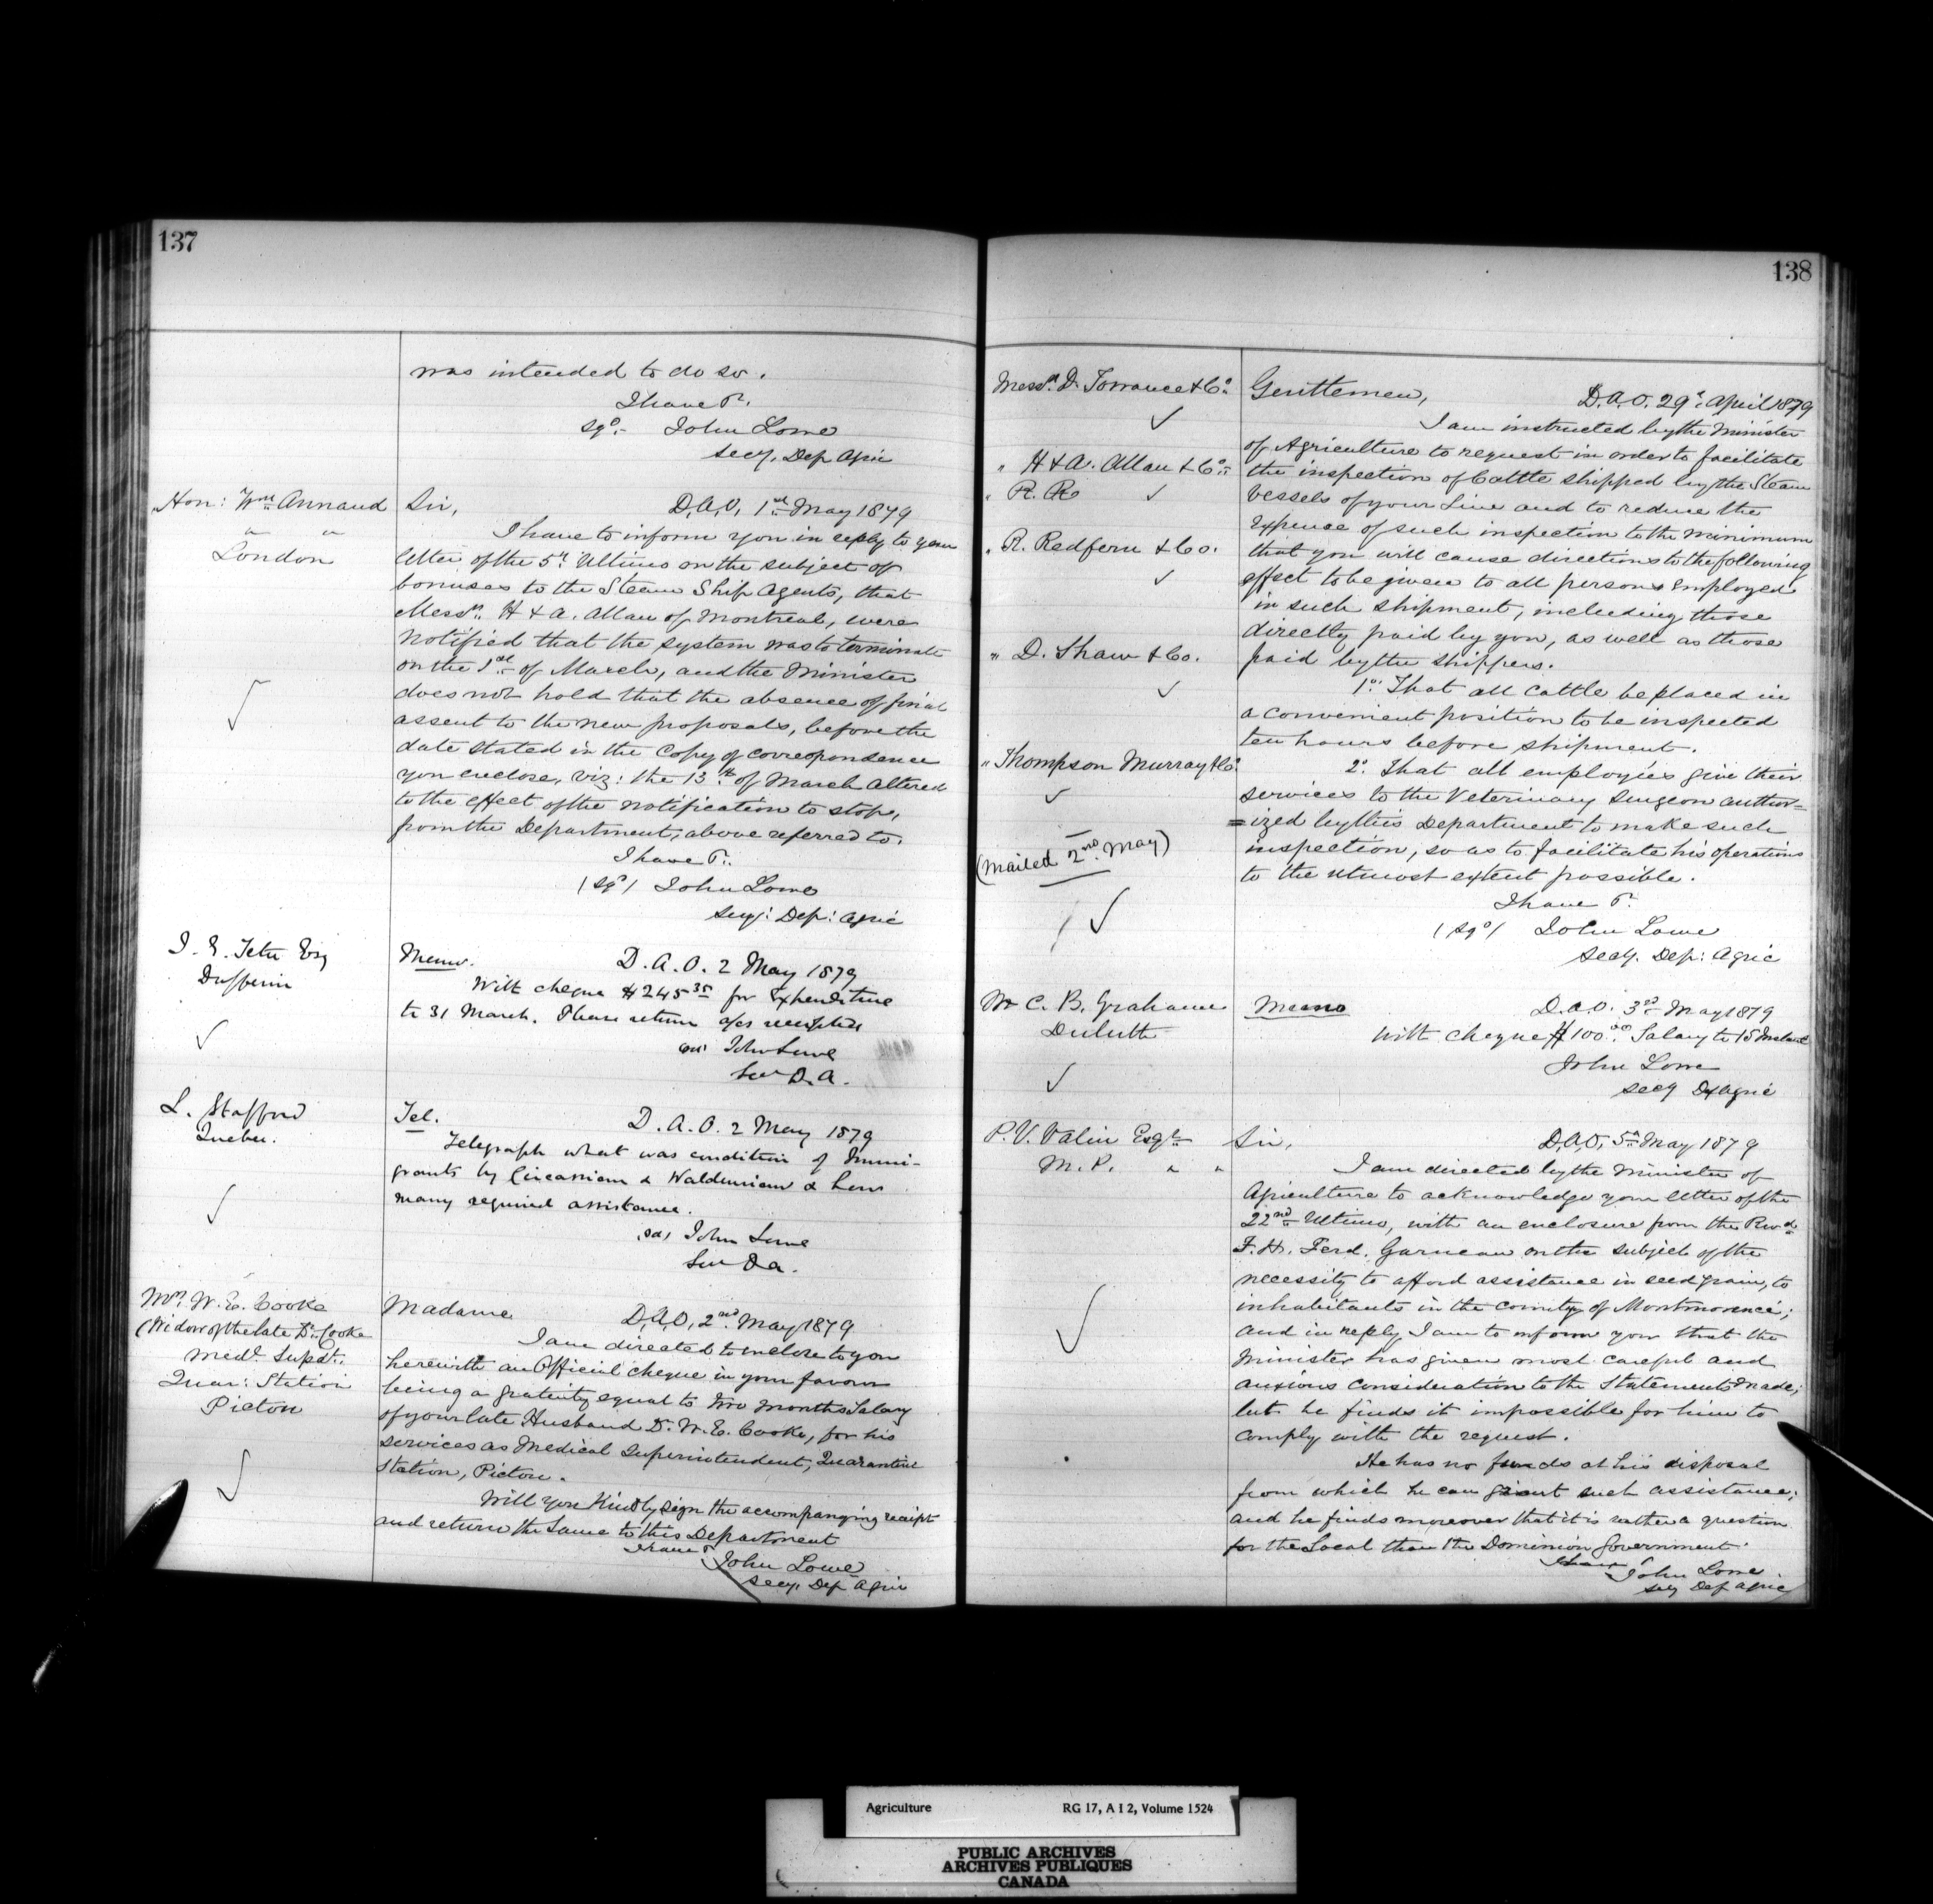 137
was intended to do so.
I have &c.
sgd:- John Lowe
Secy. Dep Agric
Hon: Wm Annand
" "
London
Sir, D.A.O. 1st May 1879
I have to inform you in reply to your
letter of the 5th Ultimo on the subject of
bonuses to the Steam Ship Agents, that
Messrs. H & A. Allan of Montreal, were
notified that the system was to terminate
on the 1st of March, and the Minister
does not hold that the absence of final
assent to the new proposals, before the
date stated in the copy of correspondence
you enclose, viz: the 13th of March altered
to the effect of the notification to stop,
from the Department, above referred to.
I have &c.
(sgd) John Lowe
Secy: Dep: Agric
J. E. Tetu Esq
Dufferin
Memo. D.A.O. 2 May 1879
With cheque $245.35 for Expenditure
to 31 March. Please return a/cs receipted
John Lowe
Sec D.A.
L. Stafford
Quebec.
Tel. D.A.O. 2 May 1879
Telegraph what was condition of Immi-
grants by Circassian & Waldensian & how
many required assistance.
(sd) John Lowe
Sec D.A.
Mrs. W. E. Cooke
(Widow of the late Dr. Cooke
Medl. Supdt.
Quar: Station
Picton
Madame D.A.O. 2nd May 1879
I am directed to enclose to you
herewith an Official cheque in your favour
being a gratuity equal to two months Salary
of your late Husband Dr. W. E. Cooke, for his
services as Medical Superintendent, Quarantine
Station, Picton.
Will you Kindly sign the accompanying receipt
and return the same to this Department
I have &c
John Lowe
Secy. Dep Agric
138
Messrs. D. Torrance & Co.
" H & A. Allan & Co.
" R. Re
" R. Redfern & Co.
" D. Shaw & Co.
" Thompson Murray & Co.
(Mailed 2nd May)
Gentlemen, D.A.O. 29th April 1879
I am instructed by the Minister
of Agriculture to request in order to facilitate
the inspection of Cattle shipped by the Steam
Vessels of your Line and to reduce the
expense of such inspection to the minimum
that you will cause directions to the following
effect to be given to all persons employed
in such shipment, including those
directly paid by you, as well as those
paid by the shippers.
1o. That all cattle be placed in
a convenient position to be inspected
ten hours before shipment.
2o. That all employés give their
services to the Veterinary Surgeon author-
=ized by this Department to make such
inspection, so as to facilitate his operations
to the utmost extent possible.
I have &c.
(sgd) John Lowe
Secy. Dep: Agric
Mr C. B. Grahame
Duluth
Memo D.A.O. 3rd May 1879
With cheque $100.00 Salary to 15 Instant
John Lowe
Secy D Agric
P. V. Valin Esqre
M.P. " "
Sir, D.A.O. 5th May 1879
I am directed by the Minister of
Agriculture to acknowledge your letter of the
22nd Ultimo, with an enclosure from the Revd
F. H. Ferd. Garneau on the subject of the
necessity to afford assistance in seed grain, to
inhabitants in the county of Montmorenci;
and in reply I am to inform you that the
Minister has given most careful and
anxious consideration to the Statements made;
but he finds it impossible for him to
comply with the request.
He has no funds at his disposal
from which he can grant such assistance;
and he finds moreover that it is rather a question
for the Local than the Dominion Government.
I have &c
John Lowe
Secy Dep Agric
Agriculture RG 17, A I 2, Volume 1524
PUBLIC ARCHIVES
ARCHIVES PUBLIQUES
CANADA